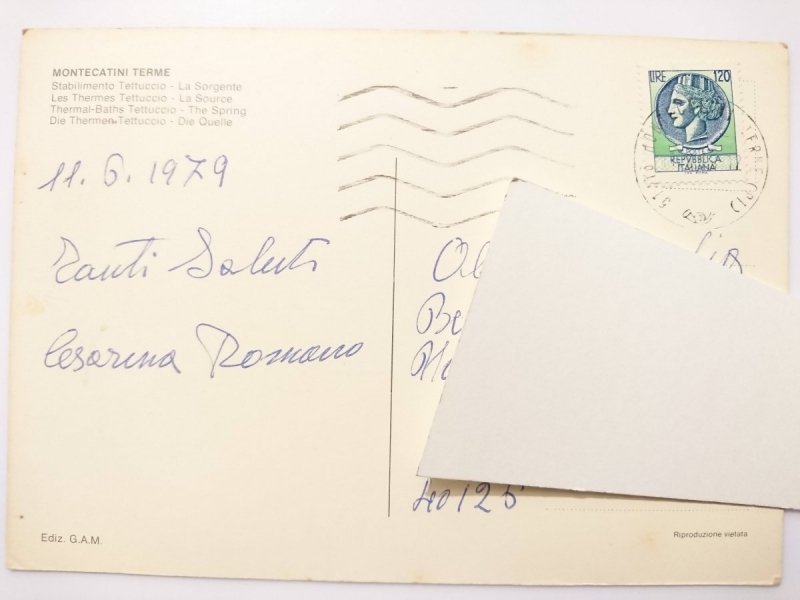 MONTECATINI TERME
Stabilimento Tettuccio - La Sorgente
Les Thermes Tettuccio - La Source
Thermal-Baths Tettuccio - The Spring
Die Thermen Tettuccio - Die Quelle
LIRE 120
REPVBBLICA
ITALIANA
11.6.1979
Tanti Saluti
Cesarina Romano
40125
Ediz. G.A.M.
Riproduzione vietata